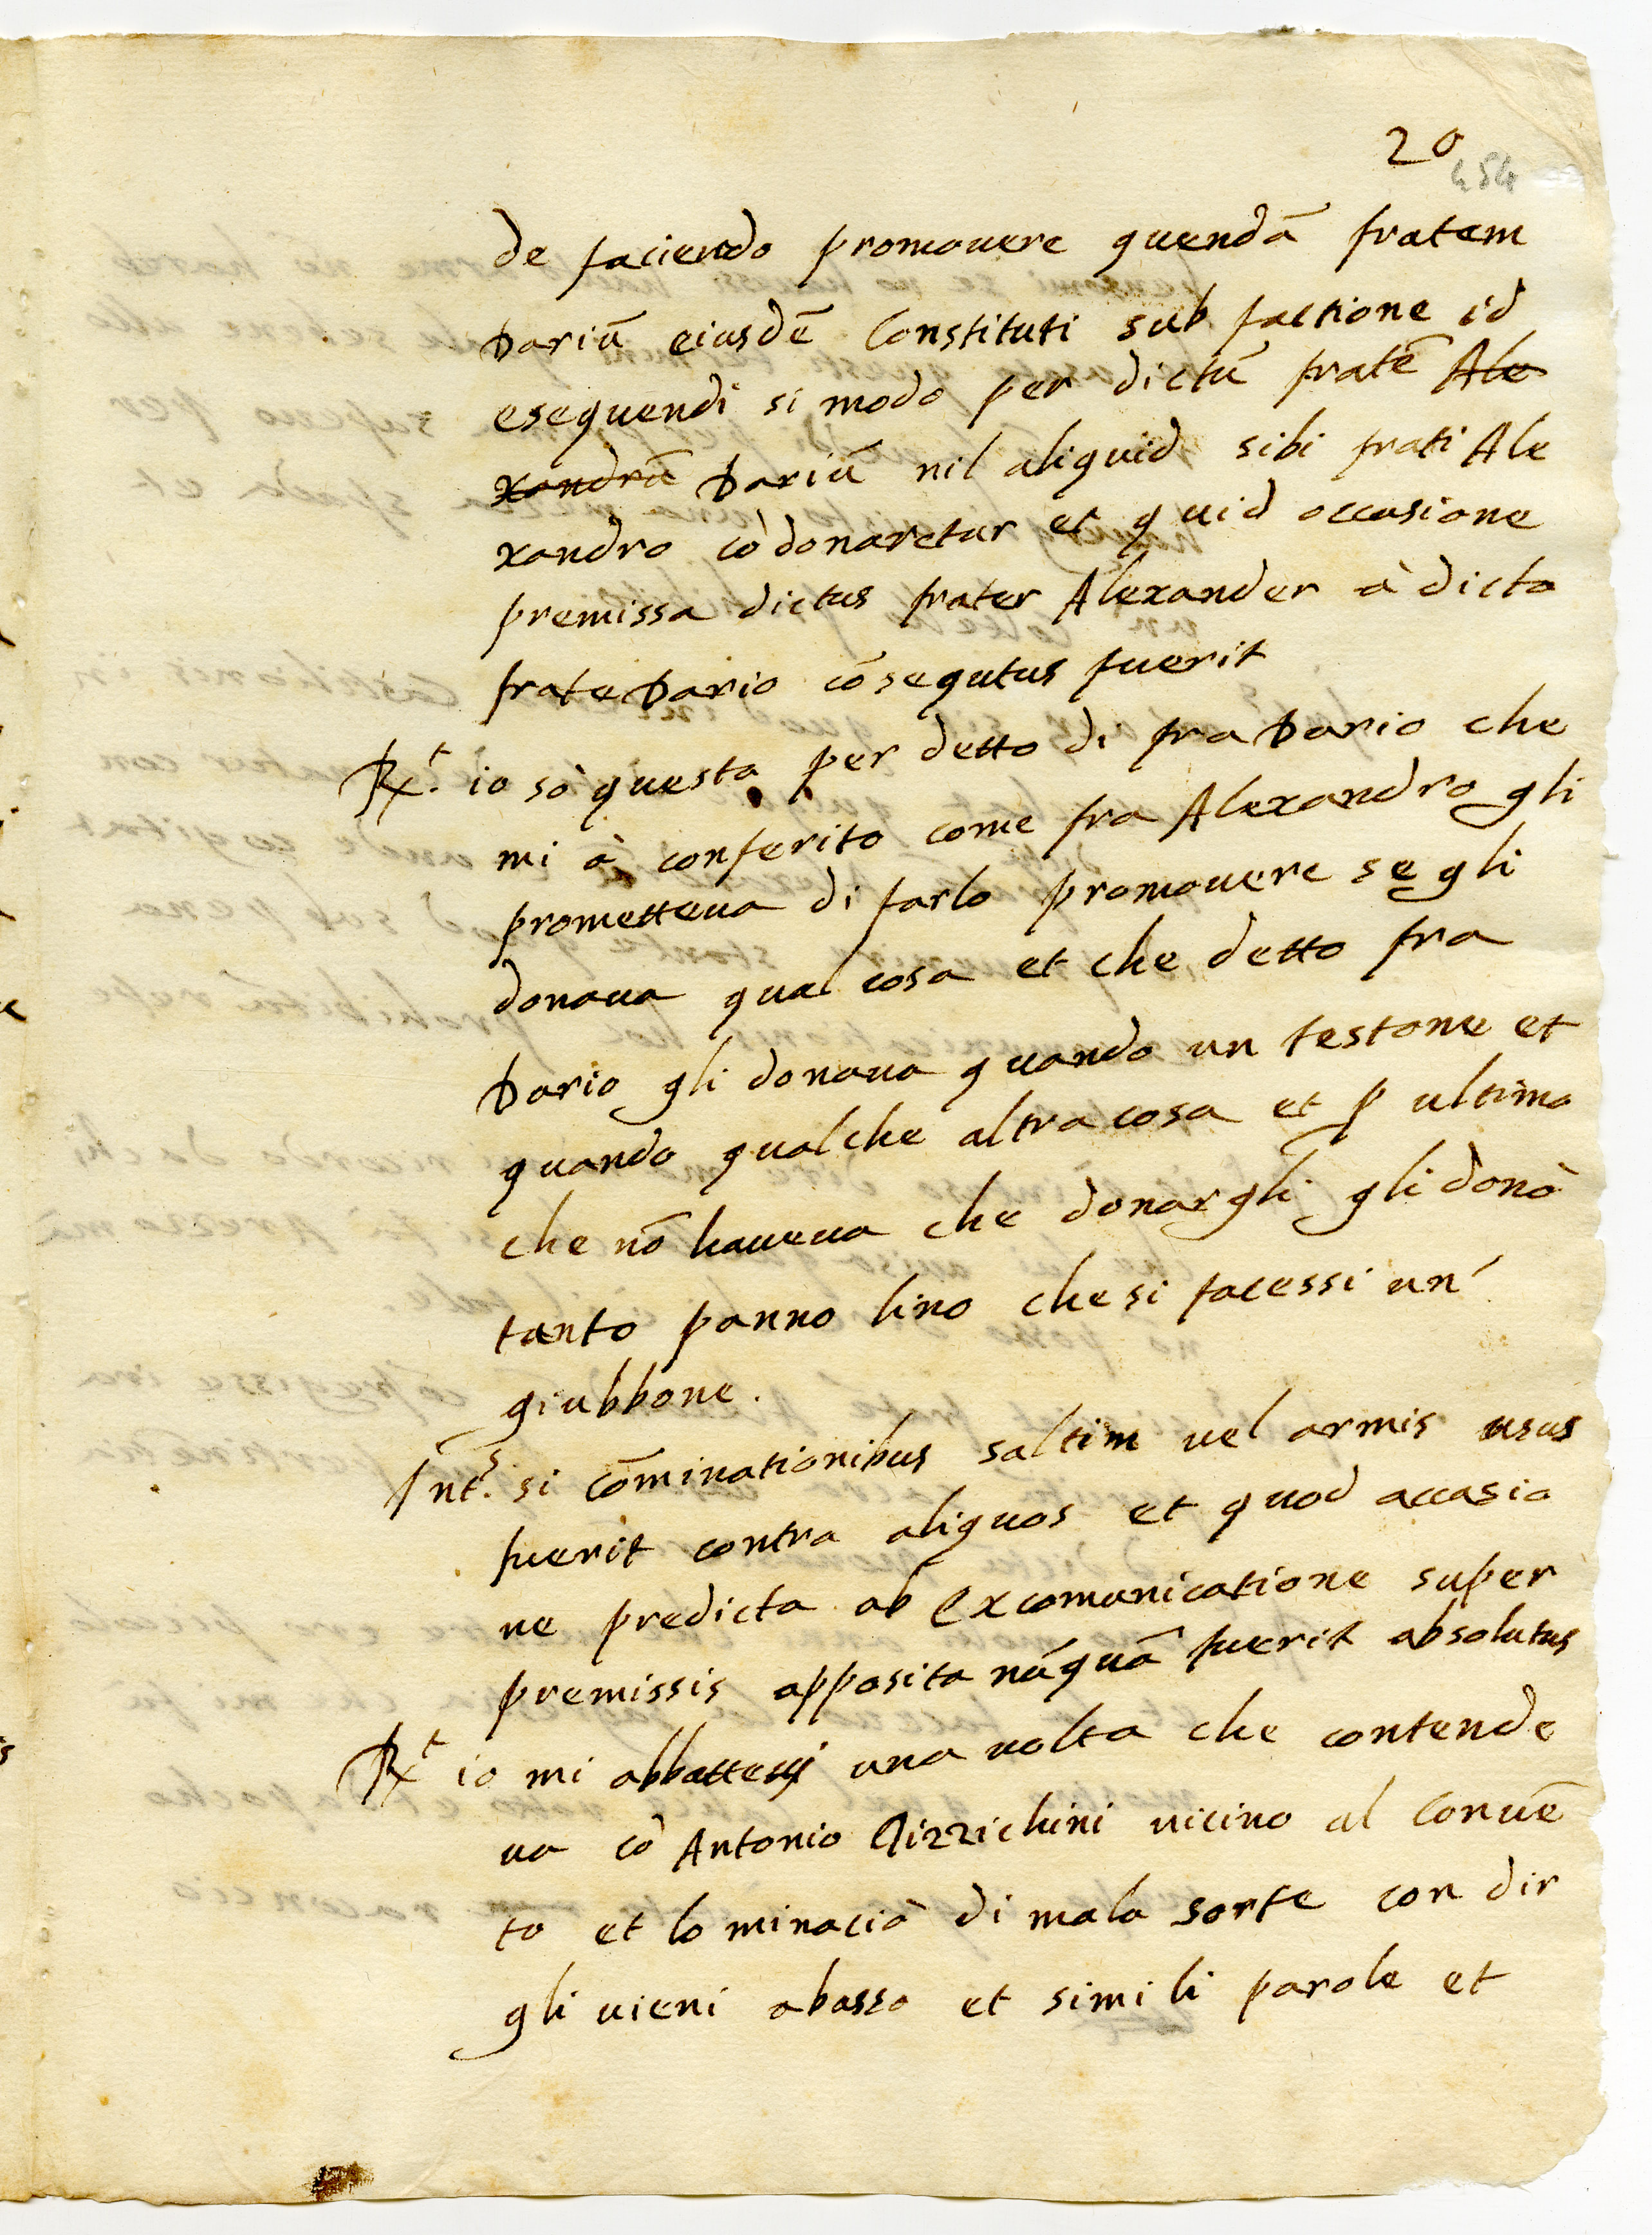 20
454
de faciendo promouere quendā fratem
Dariū eiusdē Constituti sub factione id
esequendi si modo per dictū fratē Ale
xandrū Dariū nil aliquid sibi frati Ale
xandro cōdonaretur et quid occasione
premissa dictus frater Alexander à dicto
frate Dario cōsequtus fuerit
Rx.t io sò questo per detto di fra Dario che
mi à conferito come fra Alexandro gli
prometteua di farlo promouere se gli
donaua qual cosa et che detto fra
Dario gli donaua quando un testone et
quando qualche altra cosa et p ultimo
che nō haueua che donargli gli donò
tanto panno lino che si facessi un'
giubbone.
Int.s si cōminationibus saltim uel armis usus
fuerit contra aliquos et quod occasio
ne predicta ab excomunicatione super
premissis apposita nūquā fuerit absolutus
Rx.t io mi abbattessi una uolta che contende
ua cō Antonio vicino al Conuē
to et lo minaciò di mala sorte con dir
gli uieni abasso et simili parole et